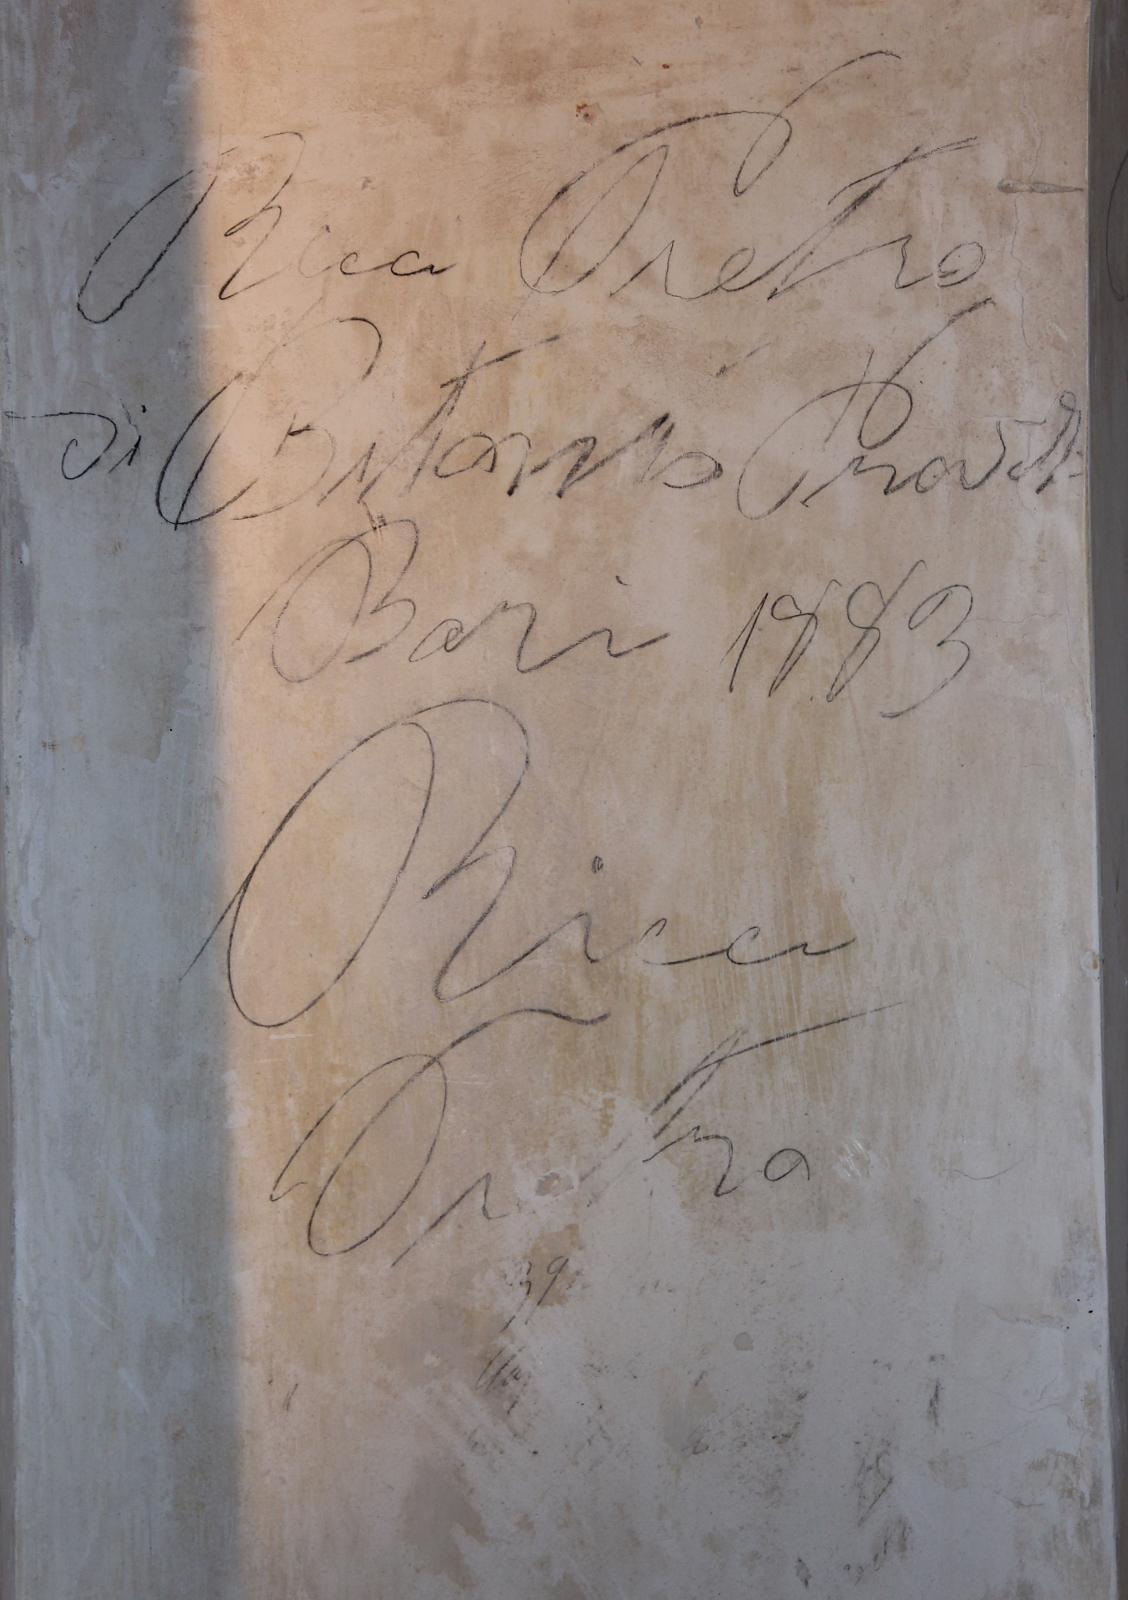 Ricci Pietro
Di Bitonto Prov di
Bari 1883
Ricci
Pietro
39